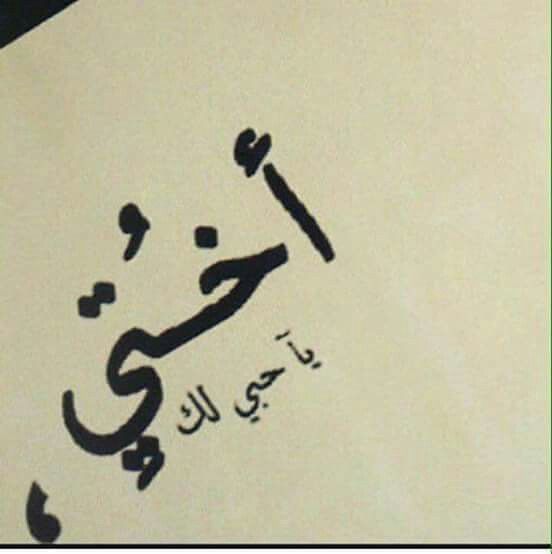 أخُتيِ
يآ حبي لك
،